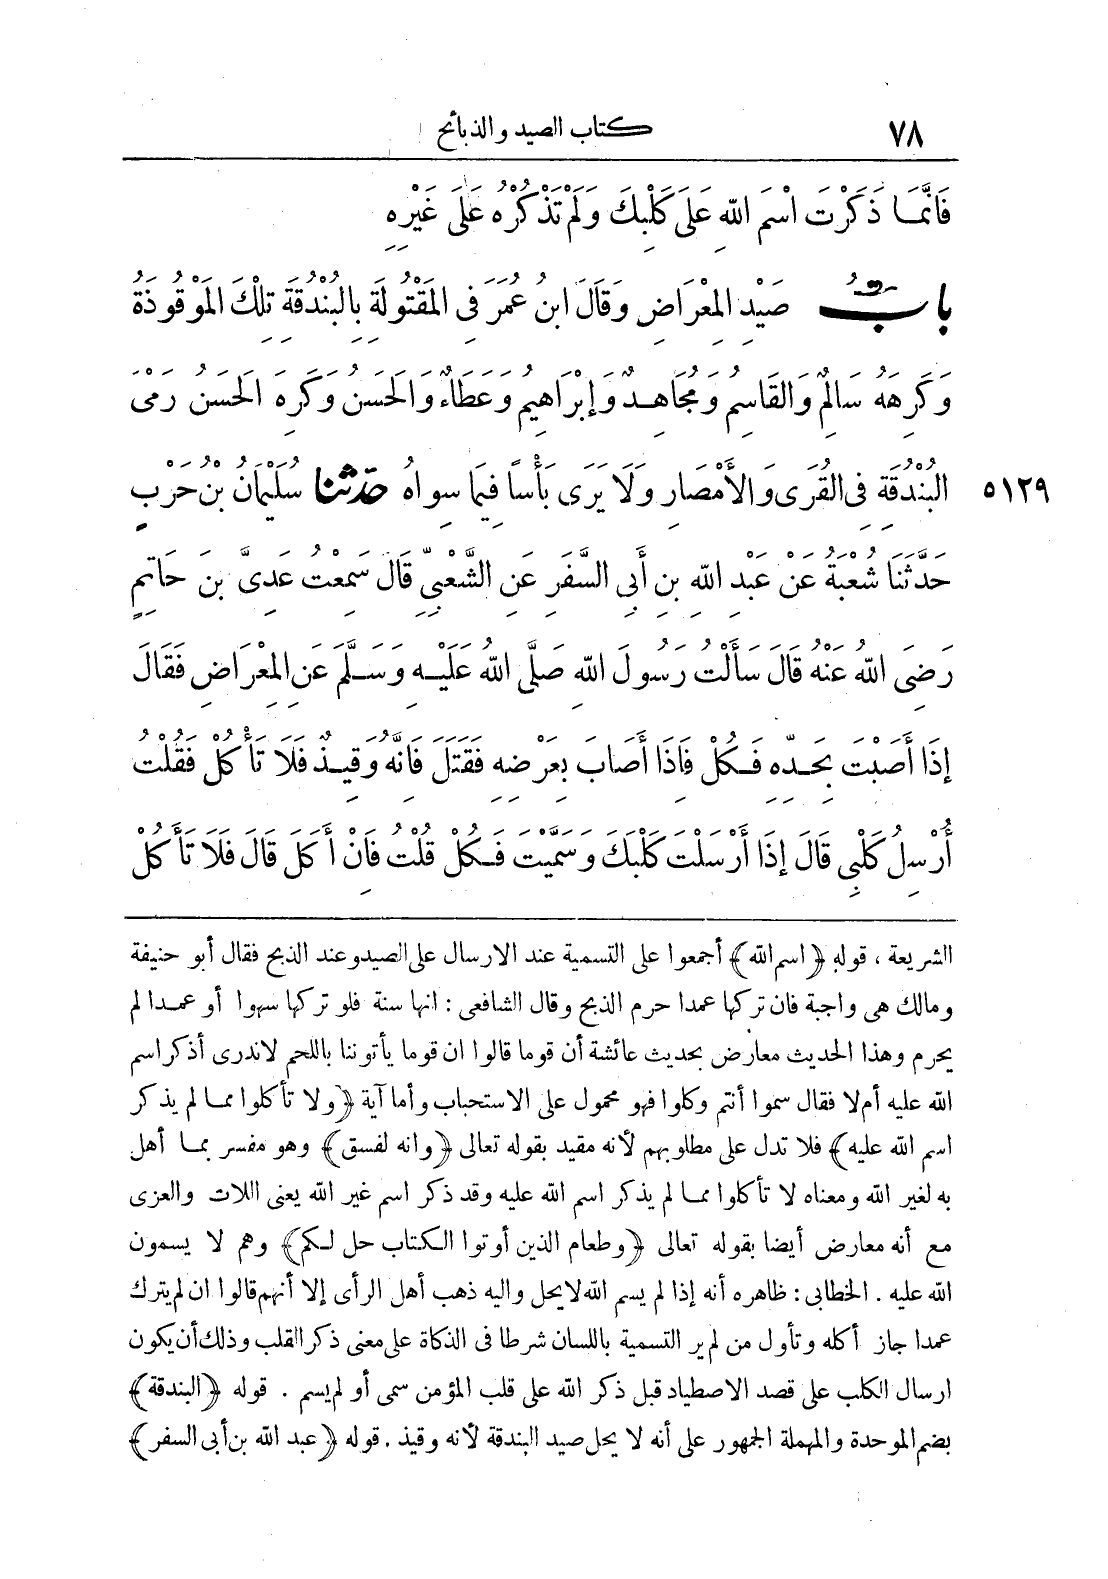 ٧٨ كتاب الصيد والذبائح
فَانَّمَا ذَكَرْتَ اسْمَ اللهِ عَلَى كَلْبِكَ وَلَمْ تَذْكُرْهُ عَلَى غَيْرِهِ
بابُ صَيْدِ المِعْرَاضِ وَقَالَ ابنُ عُمَرَ فِى المَقْتُولَةِ بِالبُنْدُقَةِ تِلْكَ المَوْقُوذَةُ
وَكَرِهَهُ سَالِمٌ وَالقَاسِمُ وَمُجَاهِدٌ وَإِبْرَاهِيمُ وَعَطَاءٌ وَالحَسَنُ وَكَرِهَ الحَسَنُ رَمْىَ
البُنْدُقَةِ فِى القُرَى وَالأَمْصَارِ وَلَا يَرَى بَأْسًا فِيمَا سِوَاهُ حدّثنا سُلَيْمَانُ بْنُ حَرْبٍ ٥١٢٩
حَدَّثَنَا شُعْبَةُ عَنْ عَبْدِ اللهِ بنِ أَبِى السَّفَرِ عَنِ الشَّعْبِىِّ قَالَ سَمِعْتُ عَدِىَّ بنَ حَاتِمٍ
رَضِىَ اللهُ عَنْهُ قَالَ سَأَلْتُ رَسُولَ اللهِ صَلَّى اللهُ عَلَيْهِ وَسَلَّمَ عَنِ المِعْرَاضِ فَقَالَ
إِذَا أَصَبْتَ بِحَدِّهِ فَكُلْ فَاِذَا أَصَابَ بِعَرْضِهِ فَقَتَلَ فَاِنَّهُ وَقِيذٌ فَلَا تَأْكُلْ فَقُلْتُ
أُرْسِلُ كَلْبِى قَالَ إِذَا أَرْسَلْتَ كَلْبَكَ وَسَمَّيْتَ فَكُلْ قُلْتُ فَاِنْ أَكَلَ قَالَ فَلَا تَأْكُلْ
الشريعة ، قوله ﴿اسم الله﴾ أجمعوا على التسمية عند الارسال على الصيد وعند الذبح فقال أبو حنيفة
ومالك هى واجبة فان تركها عمدا حرم الذبح وقال الشافعى : انها سنة فلو تركها سهوا أو عمدا لم
يحرم وهذا الحديث معارض بحديث عائشة أن قوما قالوا ان قوما يأتوننا باللحم لاندرى أذكر اسم
الله عليه أم لا فقال سموا أنتم وكلوا فهو محمول على الاستحباب وأما آية ﴿ولا تأكلوا مما لم يذكر
اسم الله عليه﴾ فلا تدل على مطلوبهم لأنه مقيد بقوله تعالى ﴿وانه لفسق﴾ وهو مفسر بما أهل
به لغير الله ومعناه لا تأكلوا مما لم يذكر اسم الله عليه وقد ذكر اسم غير الله يعنى اللات والعزى
مع أنه معارض أيضا بقوله تعالى ﴿وطعام الذين أوتوا الكتاب حل لكم﴾ وهم لا يسمون
الله عليه . الخطابى : ظاهره أنه إذا لم يسم الله لايحل واليه ذهب أهل الرأى إلا أنهم قالوا ان لم يترك
عمدا جاز أكله وتأول من لم ير التسمية باللسان شرطا فى الذكاة على معنى ذكر القلب وذلك أن يكون
ارسال الكلب على قصد الاصطياد قبل ذكر الله على قلب المؤمن سمى أو لم يسم . قوله ﴿البندقة﴾
بضم الموحدة والمهملة الجمهور على أنه لا يحل صيد البندقة لأنه وقيذ . قوله ﴿عبد الله بن أبى السفر﴾